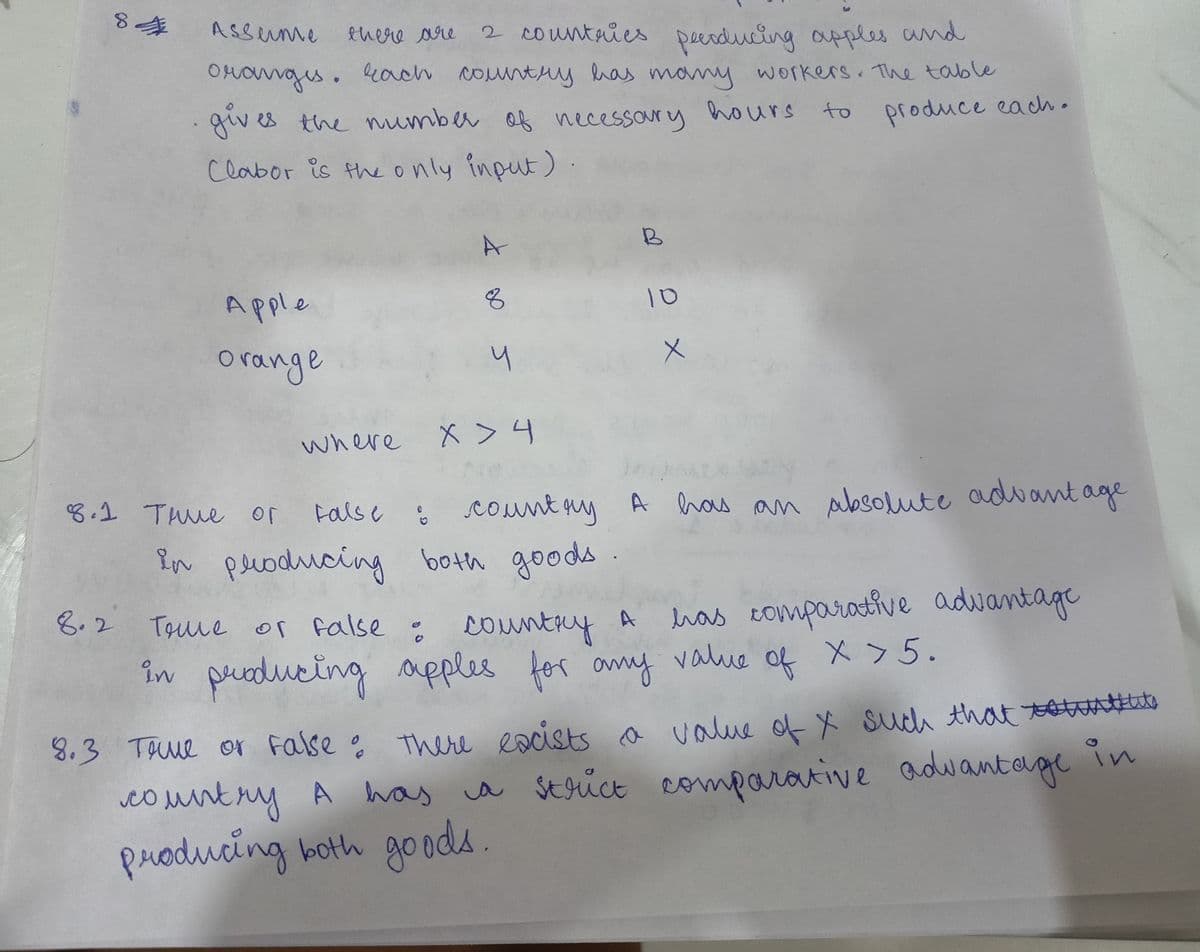 8 Assume there are 2 countries producing apples and
oranges. Each country has many workers. The table
gives the number of necessary hours to produce each.
(labor is the only input).
A B
Apple 8 10
orange 4 X
where X > 4
8.1 True or False : country A has an absolute advantage
in producing both goods.
8.2 True or false : country A has comparative advantage
in producing apples for any value of X > 5.
8.3 True or False : There exists a value of X such that
country A has a strict comparative advantage in
producing both goods.